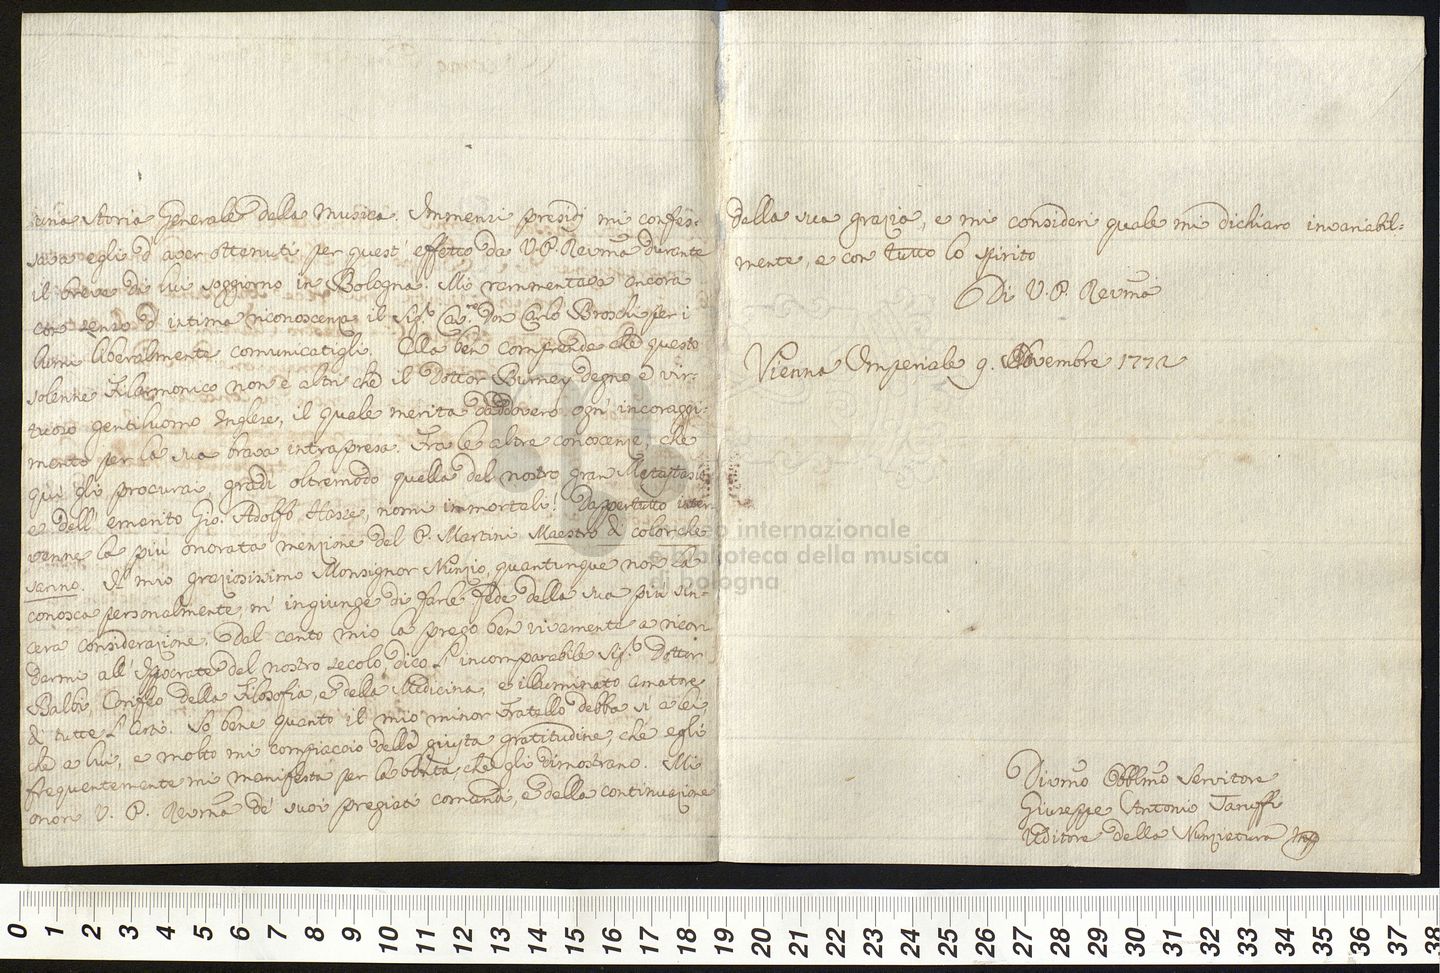 una storia Generale della Musica. Immensi presidj mi confes-
sava egli d'aver ottenuti per quest'effetto da V. P. Revma durante
il breve di lui soggiorno in Bologna. Mi rammentava ancora
con senso d'intima riconoscenza il Sigr. Cavre. Don Carlo Broschi per i
lumi liberalmente comunicatigli. Ella ben comprende che questo
solenne Filarmonico non è altri che il Dottor Burney degno e vir-
tuoso gentiluomo Inglese, il quale merita daddovero ogni incoraggi-
mento per la sua brava intrapresa. Fra le altre conoscenze, che
qui gli procurai, gradì oltremodo quella del nostro gran Metastasio
e dell'emerito Gio. Adolfo Hasse, nomi immortali! Dappertutto inter-
venne la più onorata menzione del P. Martini Maestro di color che
sanno. Il mio graziosissimo Monsignor Nunzio, quantunque non La
conosca personalmente, m'ingiunge di farle fede della sua più sin-
cera considerazione. Dal canto mio la prego ben vivamente a ricor-
darmi all'Ippocrate del nostro secolo, dico l'incomparabile Sigr. Dottor
Balbi, Corifeo della Filosofia, e della Medicina, e illuminato amatore
di tutte l'arti. So bene quanto il mio minor fratello debba sì a lei,
che a lui, e molto mi compiaccio della giusta gratitudine, che egli
frequentemente mi manifesta per la bontà, che gli dimostrano. Mi
onori V. P. Revma de' suoi pregiati comandi, e della continuazione
della sua grazia, e mi consideri quale mi dichiaro invariabil-
mente, e con tutto lo spirito
Di V. P. Revma
Vienna Imperiale 9. Novembre 1772
Divmo Obblmo Servitore
Giuseppe Antonio Taruffi
Uditore della Nunziatura
museo internazionale
e biblioteca della musica
di bologna
0 1 2 3 4 5 6 7 8 9 10 11 12 13 14 15 16 17 18 19 20 21 22 23 24 25 26 27 28 29 30 31 32 33 34 35 36 37 38